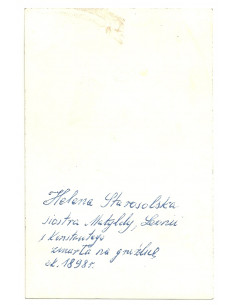 Helena Starosolska
siostra Matyldy, Leonii
i Konstantego
zmarła na gruźlicę
ok. 1898 r.